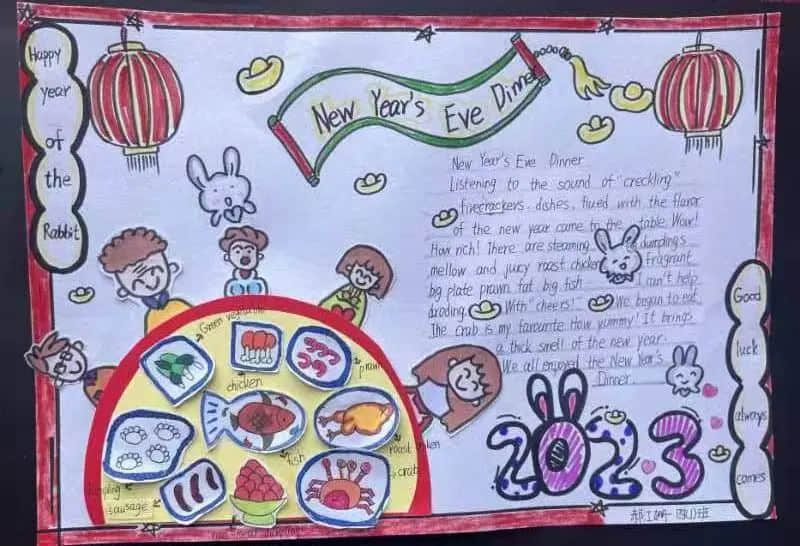 Happy
year
of
the
Rabbit
New Year's Eve Dinner
New Year's Eve Dinner
Listening to the sound of "creckling"
firecrackers. dishes, fiued with the flaror
of the new year came to the table Wow!
How rich! There are steaming dumplings
mellow and juicy roast chicken fragrant
big plate prawn fat big fish I can't help
droding. With "cheers!" We began to eat
The crab is my favourite How yummy! It brings
a thick smell of the new year.
We all enjoyed the New Year's
Dinner.
Good
luck
always
comes
Green vegetable
chicken
prawn
fish
roast chicken
crab
sausage
2023